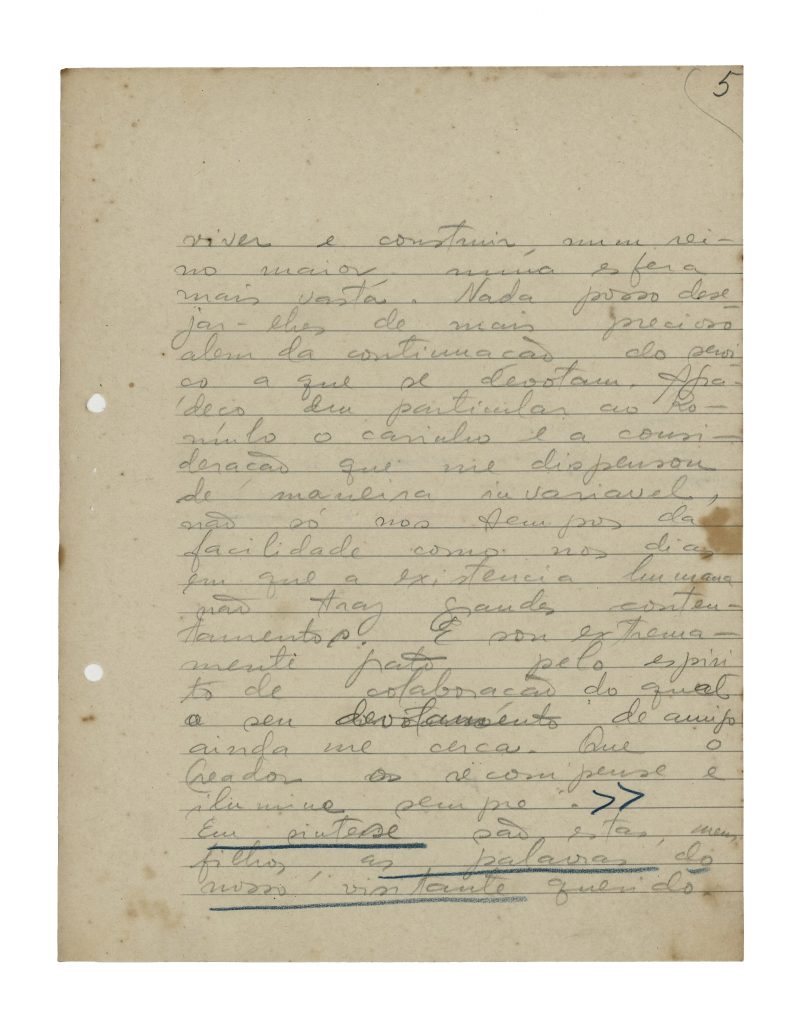 5
viver e construir, num rei-
no maior numa esfera
mais vasta. Nada posso dese
jar-lhes de mais precioso
alem da continuação do servi-
ço a que se devotam. Agra-
deço em particular ao Ro-
mulo o carinho e a consi-
deração que me dispensou
de maneira invariavel,
não só nos tempos da
facilidade como nos dias
em que a existencia humana
não traz grandes conten-
tamentos. E sou extrema-
mente grato pelo espiri
to de colaboração do qual
o seu devotamento de amigo
ainda me cerca. Que o
Creador os recompense e
ilumine sempre". >>
Em sintese são estas, meus
filhos, as palavras do
nosso visitante querido.